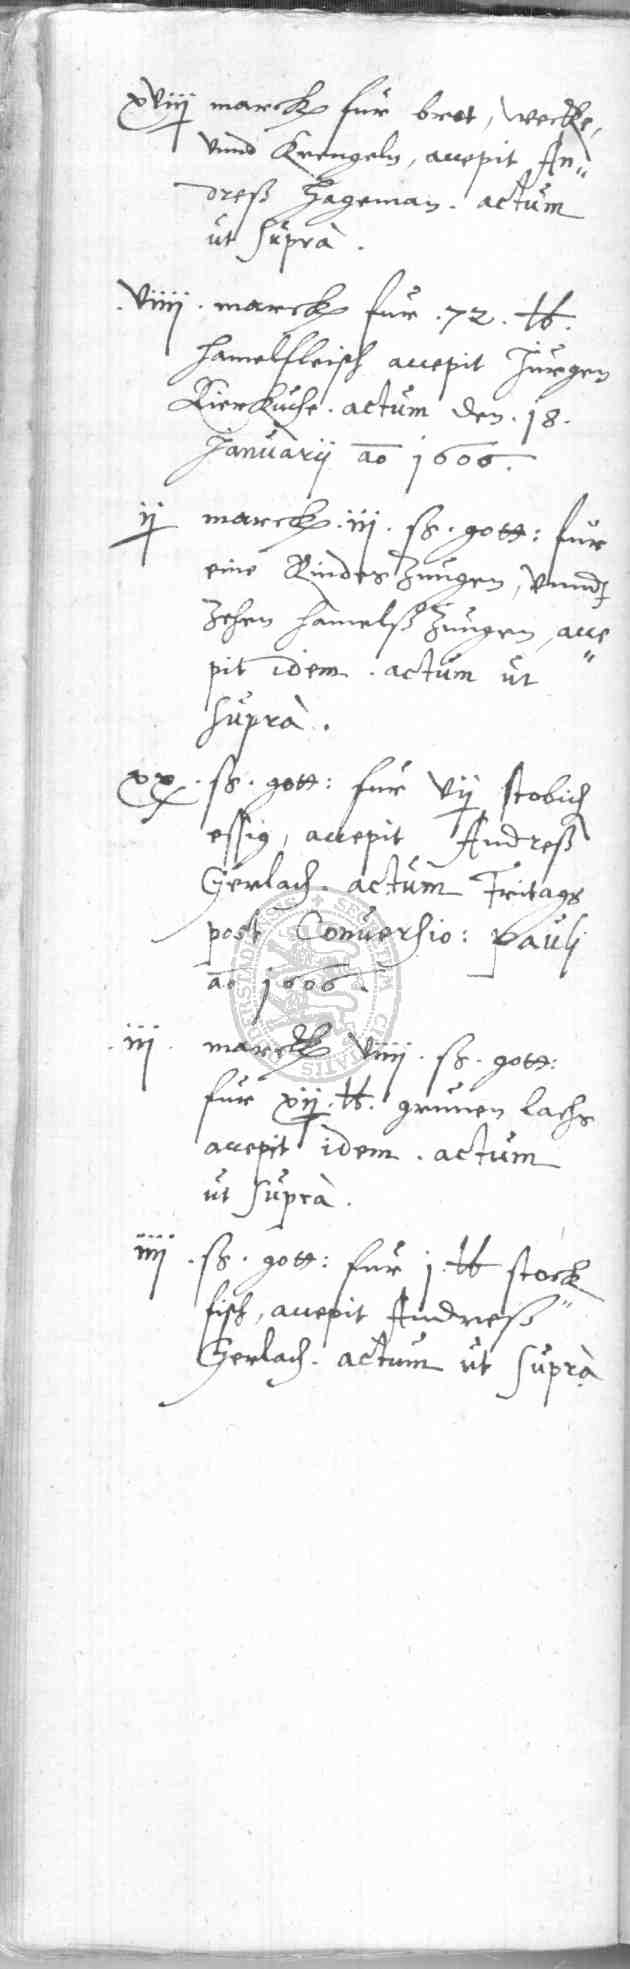 xviij marck für brot, wecke,
vnnd Krengeln, accepit An„
dreß Hageman. actum
ut suprà.
viiij. marck für .72. lb.
hamelfleisch accepit Jürgen
Kierkuche. actum den .18.
Januarij ao 1606.
ij marck .iij. ß. gott: für
eine Rindes Zungen, vnnd
Zehen hamelß Zungen, acce„
pit idem. actum ut
suprà.
xx. ß. gott: für vij stobich
essig, accepit Andreß
Gerlach. actum Fritags
post Conuersio: Pauli
ao 1606.
.iij. marck viiij. ß. gott:
für xij. lb. grunen lachs
accepit idem. actum
ut suprà.
iiij. ß. gott: für j. lb stock„
fisch, accepit Andreß
Gerlach. actum ut suprà